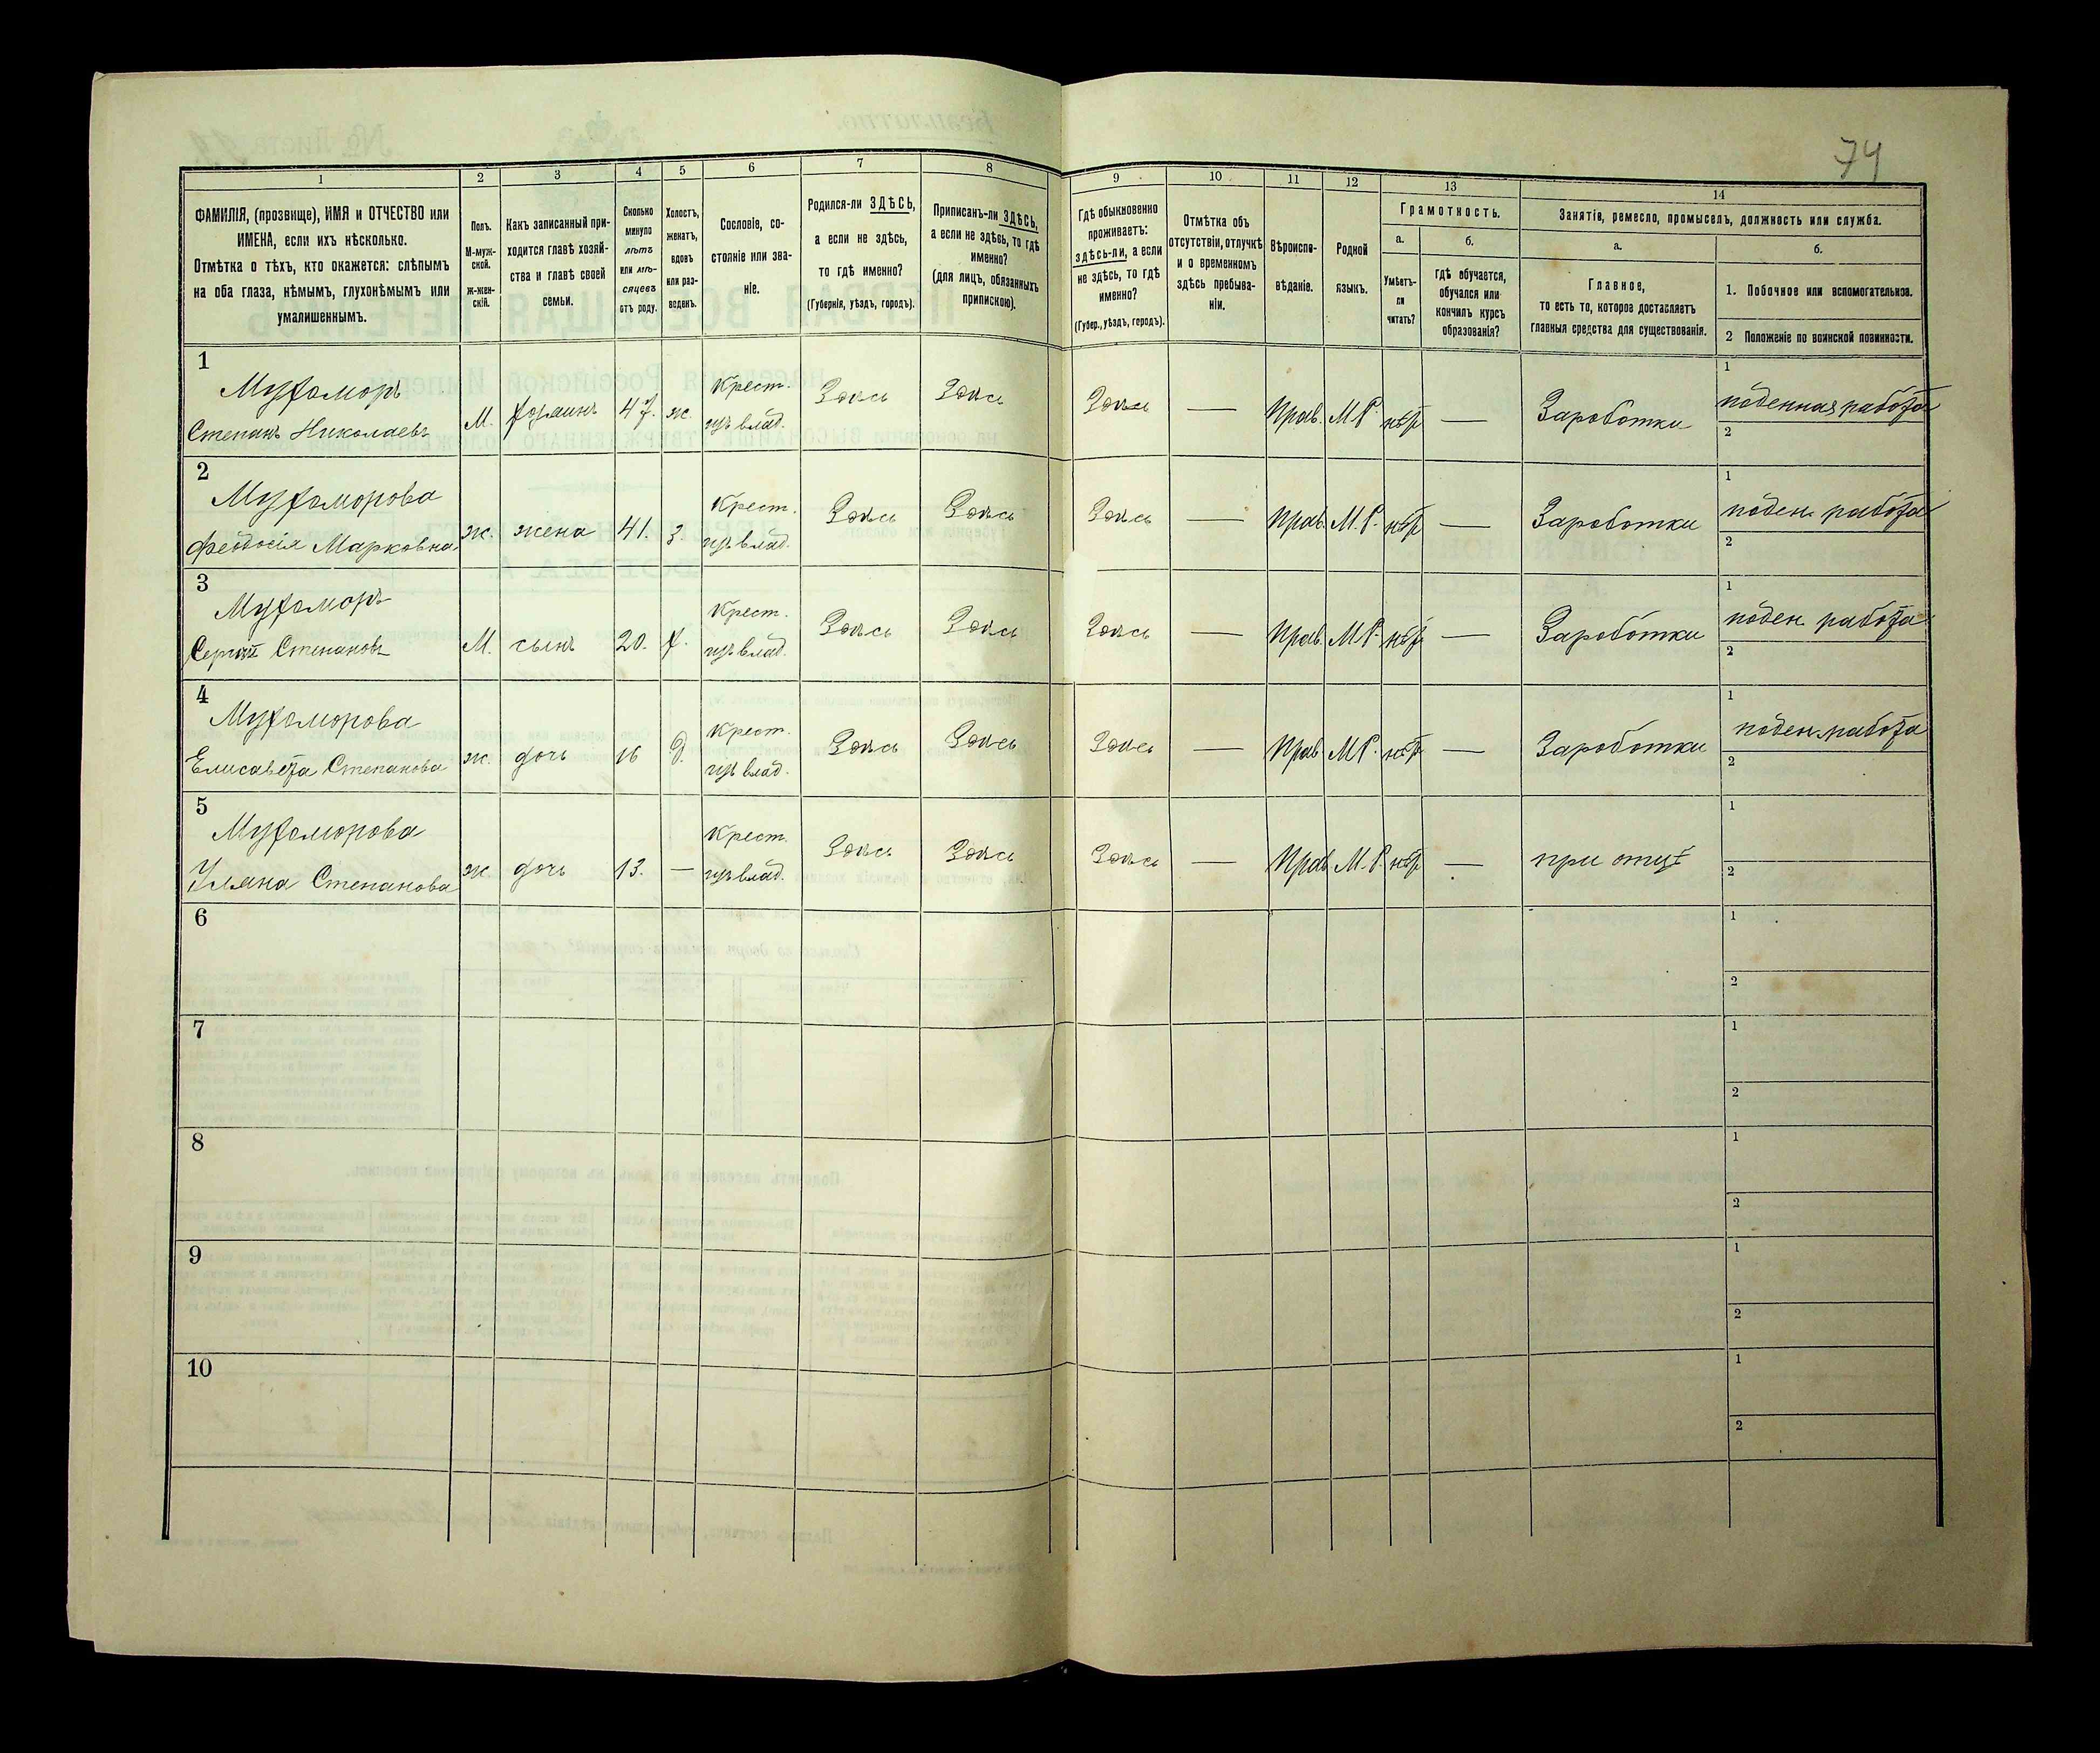 74
1
2
3
4
5
6
7
8
9
10
11
12
13
14
ФАМИЛІЯ, (прозвище), ИМЯ и ОТЧЕСТВО или
ИМЕНА, если ихъ нѣсколько.
Отмѣтка о тѣхъ, кто окажется: слѣпымъ
на оба глаза, нѣмымъ, глухонѣмымъ или
умалишеннымъ.
Полъ.
М-муж-
ской.
ж-жен-
скій.
Какъ записанный при-
ходится главѣ хозяй-
ства и главѣ своей
семьи.
Сколько
минуло
лѣтъ
или мѣ-
сяцевъ
отъ роду.
Холостъ,
женатъ,
вдовъ
или раз-
веденъ.
Сословіе, со-
стояніе или зва-
ніе.
Родился-ли ЗДѢСЬ,
а если не здѣсь,
то гдѣ именно?
(Губернія, уѣздъ, городъ).
Приписанъ-ли ЗДѢСЬ,
а если не здѣсь, то гдѣ
именно?
(для лицъ, обязанныхъ
припискою).
Гдѣ обыкновенно
проживаетъ:
здѣсь-ли, а если
не здѣсь, то гдѣ
именно?
(Губер., уѣздъ, городъ).
Отмѣтка объ
отсутствіи, отлучкѣ
и о временномъ
здѣсь пребыва-
ніи.
Вѣроиспо-
вѣданіе.
Родной
языкъ.
Грамотность.
а.
Умѣетъ-
ли
читать?
б.
гдѣ обучается,
обучался или
кончилъ курсъ
образованія?
Занятіе, ремесло, промыселъ, должность или служба.
а.
Главное,
то есть то, которое доставляетъ
главныя средства для существованія.
б.
1. Побочное или вспомогательное.
2 Положеніе по воинской повинности.
1
Мухоморъ
Степанъ Николаевъ
М.
хозяинъ
47.
ж.
Крест.
изъ влад.
Здѣсь
Здѣсь
Здѣсь
—
Прав.
М.Р.
нѣт
—
Заработки
1
поденная работа
2
2
Мухоморова
Феодосія Марковна
ж.
жена
41.
з.
Крест.
изъ влад.
Здѣсь
Здѣсь
Здѣсь
—
Прав.
М.Р.
нѣт
—
Заработки
1
поден. работа
2
3
Мухоморъ
Сергѣй Степановъ
М.
сынъ
20.
х.
Крест.
изъ влад.
Здѣсь
Здѣсь
Здѣсь
—
Прав.
М.Р.
нѣт
—
Заработки
1
поден. работа
2
4
Мухоморова
Елисавета Степанова
ж.
дочь
16
д.
Крест.
изъ влад.
Здѣсь
Здѣсь
Здѣсь
—
Прав.
М.Р.
нѣт
—
Заработки
1
поден. работа
2
5
Мухоморова
Уляна Степанова
ж
дочь
13.
—
Крест.
изъ влад.
Здѣсь
Здѣсь
Здѣсь
—
Прав.
М.Р.
нѣт
—
при отцѣ
1
2
6
1
2
7
1
2
8
1
2
9
1
2
10
1
2